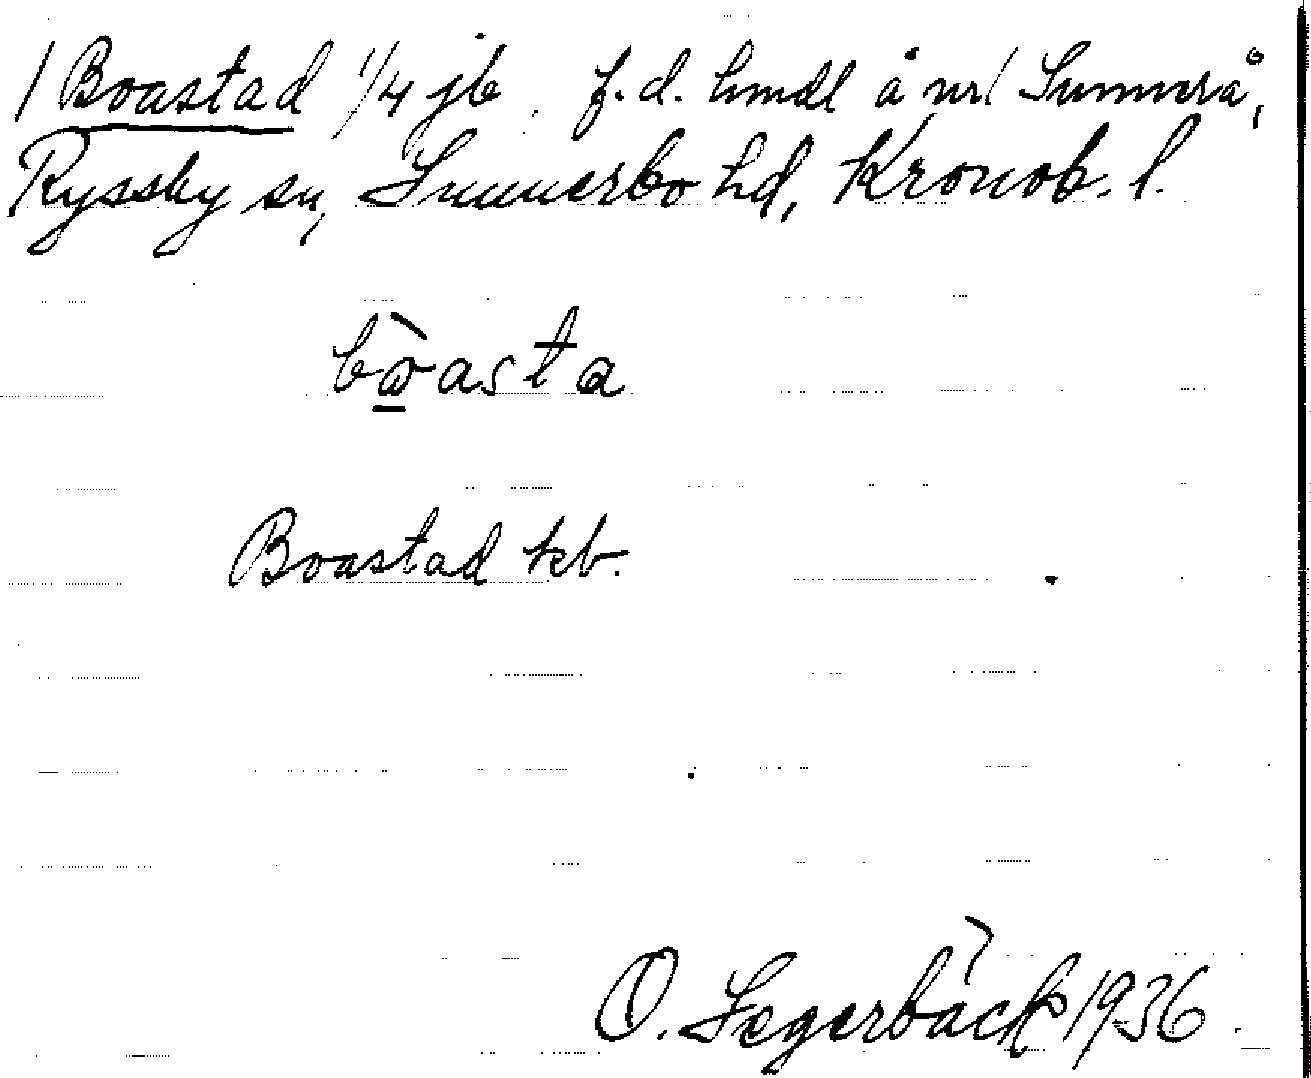 / Boastad 1/4 jb. f.d. hmdl å nr 1 Sunnerå,
Ryssby sn, Sunnerbo hd, Kronob. l.
bòasta
Boastad kb.
O. Segerbäck 1936